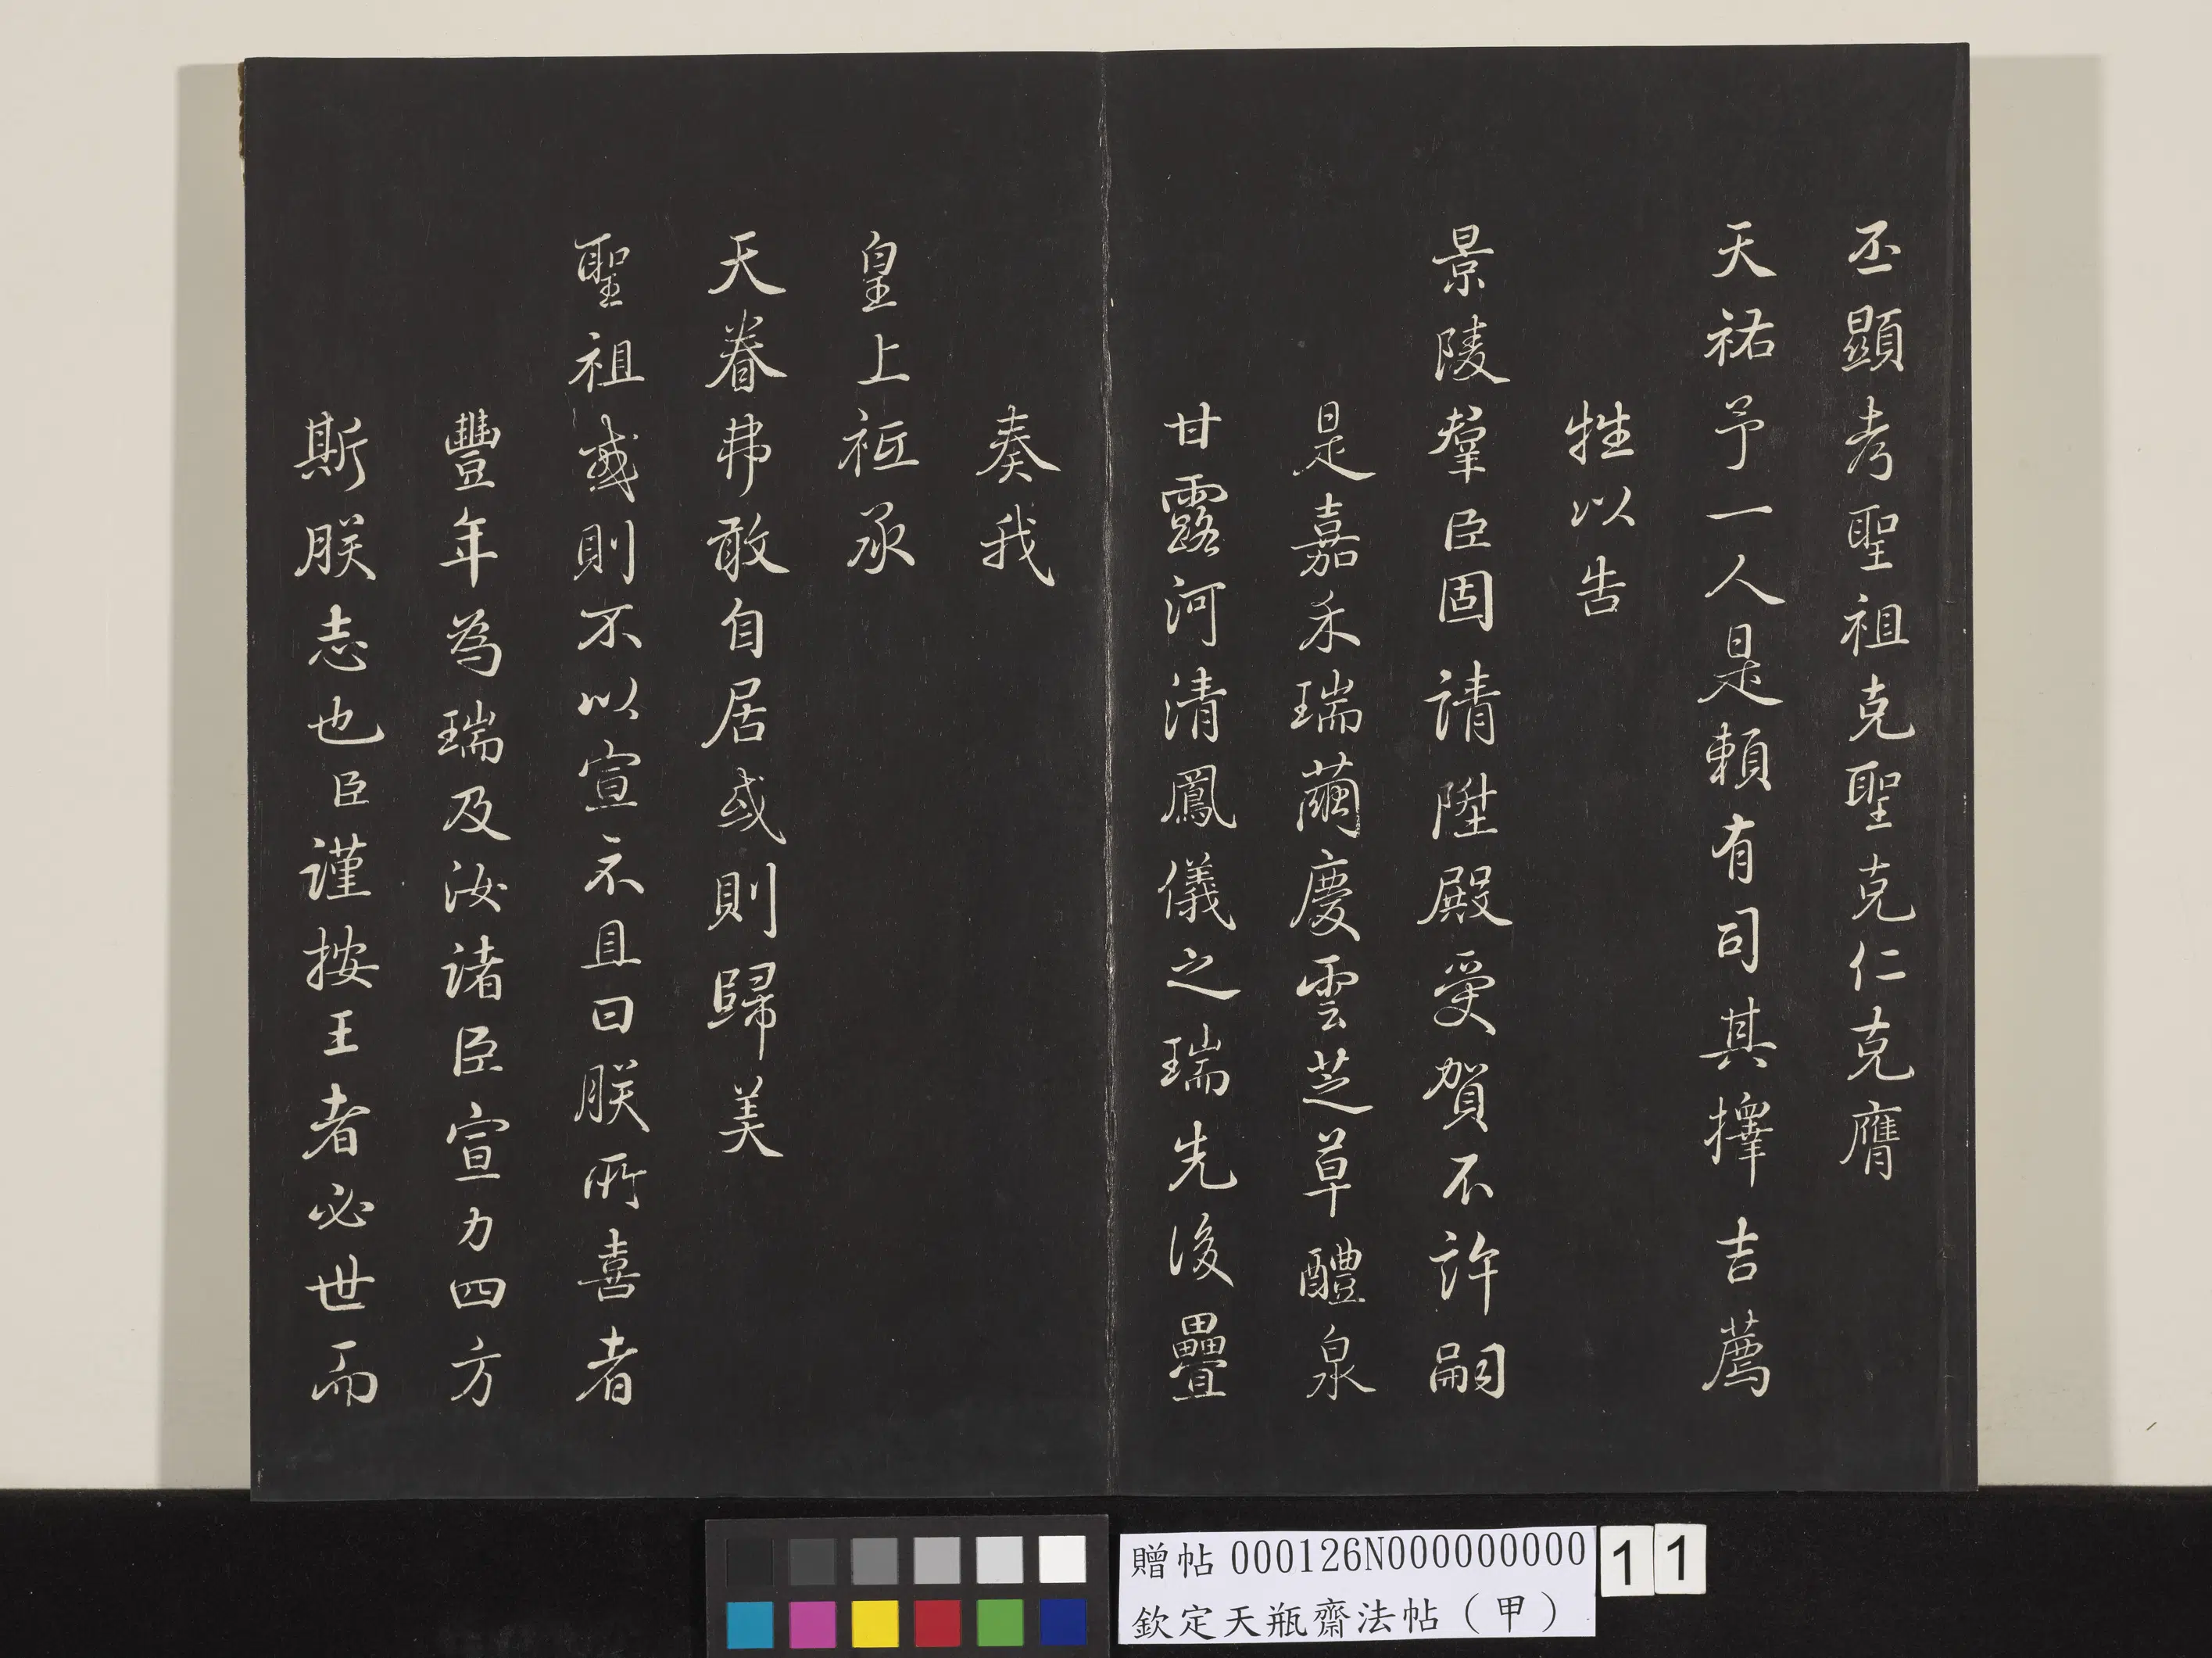 丕顯考聖祖克聖克仁克膺
天祐予一人是賴有司其擇吉薦
牲以告
景陵羣臣固請陞殿受賀不許嗣
是嘉禾瑞繭慶雲芝草醴泉
甘露河清鳳儀之瑞先後疊
奏我
皇上祗承
天眷弗敢自居或則歸美
聖祖或則不以宣示且曰朕所喜者
豐年為瑞及汝諸臣宣力四方
斯朕志也臣謹按王者必世而
贈帖 000126N000000000
欽定天瓶齋法帖（甲）
11